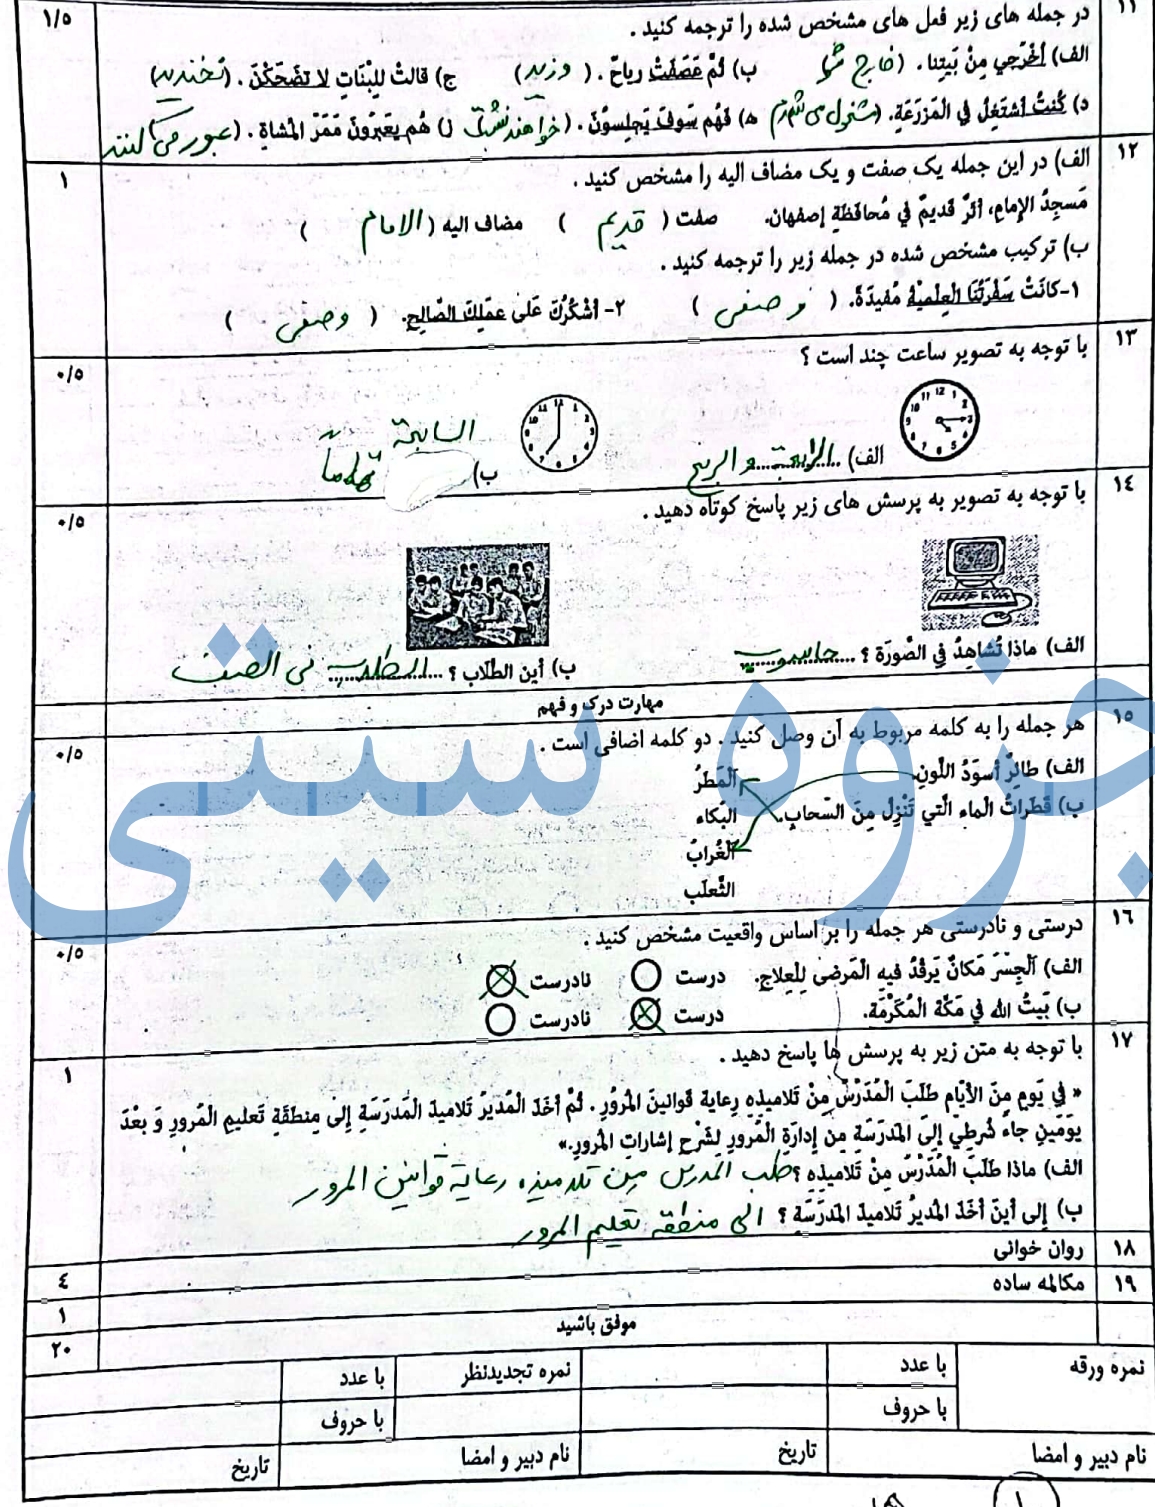 ۱۱ در جمله های زیر فعل های مشخص شده را ترجمه کنید . ۱/۵
الف) اُخْرُجي مِنْ بَیتِنا . (خارج شو) ب) ثُمَّ عَصَفَتْ ریاحٌ . (وزید) ج) قالتْ لِلبَناتِ لا تَضْحَكْنَ . (نخندید)
د) كُنتُ أشتَغِلُ فِي الْمَزرَعَةِ. (مشغول می شدم) ه) فَهُم سَوفَ یَجلِسونَ . (خواهند نشست) ز) هُم یَعبُرونَ مَمَرَّ الْمُشاةِ . (عبور می کنند)
۱۲ الف) در این جمله یک صفت و یک مضاف الیه را مشخص کنید . ۱
مَسجِدُ الإمامِ، أثَرٌ قَدیمٌ في مُحافَظَةِ إصفهان. صفت ( قدیم ) مضاف الیه ( الامام )
ب) ترکیب مشخص شده در جمله زیر را ترجمه کنید .
۱-كانَتْ سَفْرَتُنَا الْعِلميَّةُ مُفیدَةً. ( وصفی ) ۲- أشْكُرُكَ عَلیٰ عَمَلِكَ الصّالِحِ. ( وصفی )
۱۳ با توجه به تصویر ساعت چند است ؟ ۰/۵
الف) الرابعة و الربع ب) السابعة تماماً
۱۴ با توجه به تصویر به پرسش های زیر پاسخ کوتاه دهید . ۰/۵
الف) ماذا تُشاهِدُ فِي الصّورَة ؟ حاسوب ب) أین الطُلّاب ؟ الطلاب في الصف
مهارت درک و فهم
۱۵ هر جمله را به کلمه مربوط به آن وصل کنید . دو کلمه اضافی است . ۰/۵
الف) طائِرٌ أسوَدُ اللَّونِ اَلْمَطَرُ
ب) قَطَراتُ الْماء الَّتي تَنْزِلُ مِنَ السَّحابِ. البُكاء
اَلْغُرابُ
الثَّعلَب
۱۶ درستی و نادرستی هر جمله را بر اساس واقعیت مشخص کنید . ۰/۵
الف) اَلْجِسْرَ مَكانٌ یَرقُدُ فیهِ الْمَرضیٰ لِلعِلاجِ. درست نادرست
ب) بَیتُ الله في مَكّة الْمُكَرَّمَة. درست نادرست
۱۷ با توجه به متن زیر به پرسش ها پاسخ دهید . ۱
« في یَومٍ مِنَ الأیّام طَلَبَ الْمُدَرّسُ مِنْ تَلامیذِهِ رِعایة قَوانینَ المُرورِ . ثُمَّ أخَذَ الْمُدیرُ تَلامیذَ الْمَدرَسَةِ إلیٰ مِنطَقَةِ تَعلیمِ الْمُرورِ وَ بَعْدَ
یَومَینِ جاءَ شُرطِيٌّ إلیَ الْمَدرَسَةِ مِن إدارَةِ الْمُرورِ لِشَرْحِ إشاراتِ الْمُرورِ.»
الف) ماذا طَلَبَ الْمُدَرّسُ مِنْ تَلامیذِه ؟ طلب المدرس مِن تلامیذه رعایة قوانین المرور
ب) إلی أینَ أخَذَ الْمُدیرُ تَلامیذَ الْمَدرَسَةِ ؟ الی منطقة تعلیم المرور
۱۸ روان خوانی ٤
۱۹ مکالمه ساده ۱
موفق باشید ۲۰
نمره ورقه با عدد نمره تجدیدنظر با عدد
با حروف با حروف
نام دبیر و امضا تاریخ نام دبیر و امضا تاریخ
جزوه سیتی